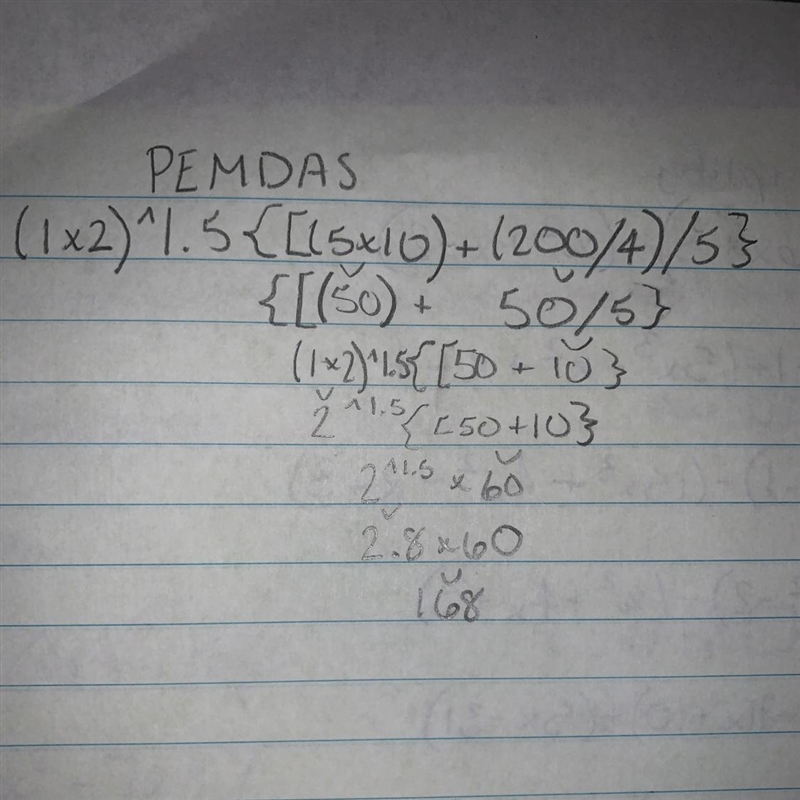 PEMDAS
(1x2)^1.5{[(5x10)+(200/4)/5}
{[(50)+ 50/5}
(1x2)^1.5{[50+10}
2^1.5{[50+10}
2^1.5 x60
2.8x60
168